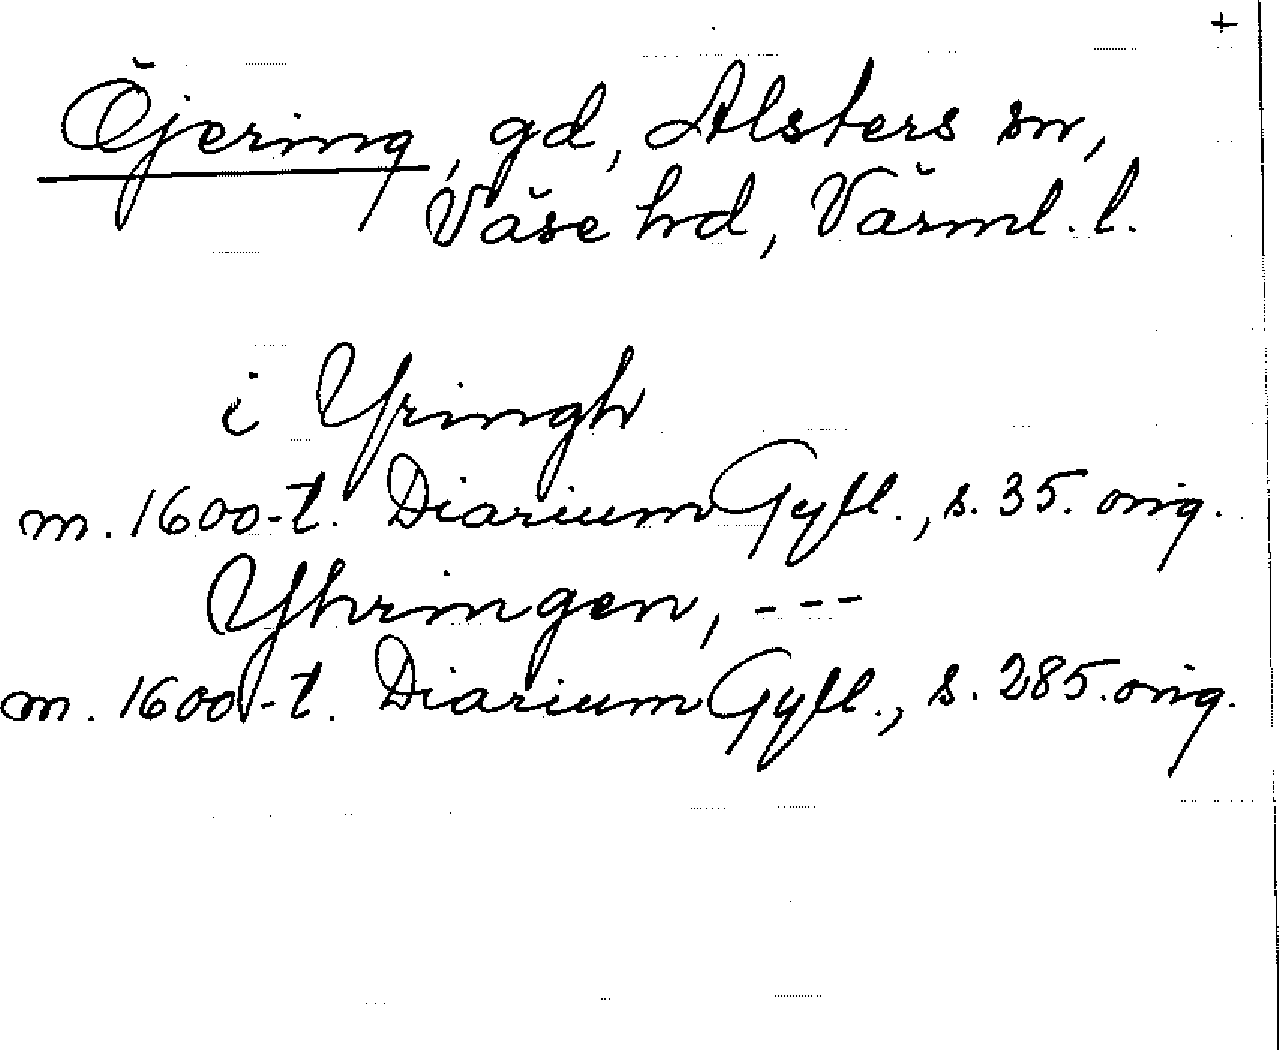 +
Öjering, gd, Alsters sn,
Väse hd, Värml. l.
i Yringh
m. 1600-t. Diarium Gyll., s. 35. orig.
Yhringen, ---
m. 1600-t. Diarium Gyll., s. 285. orig.